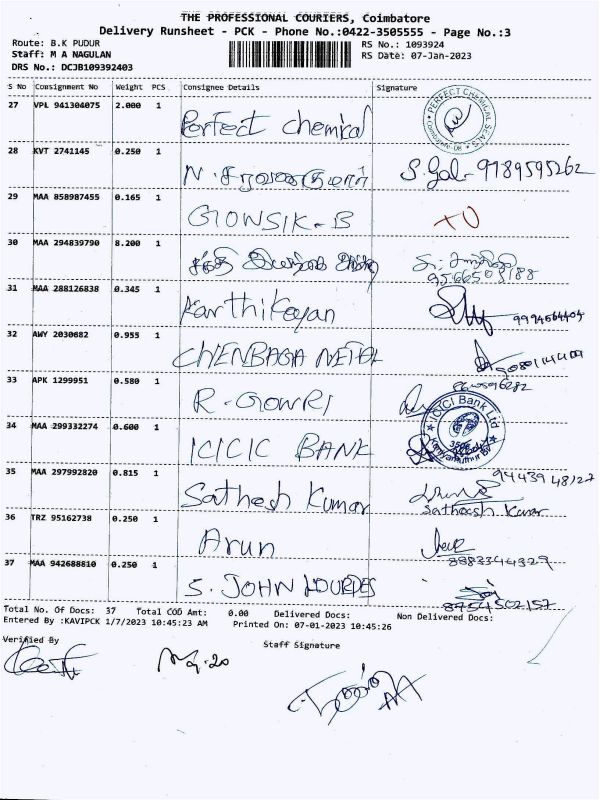 THE PROFESSIONAL COURIERS, Coimbatore
Delivery Runsheet - PCK - Phone No.:0422-3505555 - Page No.:3
Route: B.K PUDUR
RS No.: 1093924
Staff: M A NAGULAN
RS Date: 07-Jan-2023
DRS No.: DCJB109392403
S No Consignment No Weight PCS Consignee Details Signature
27 VPL 941304075 2.000 1 Perfect chemical
PERFECT CHEMICAL SEALS
28 KVT 2741145 0.250 1 N. சரவணகுமார் S. Gal - 9789595262
29 MAA 858987455 0.165 1 GOWSIK-B
30 MAA 294839790 8.200 1
31 MAA 288126838 0.345 1 Karthikeyan 9994564404
32 AWY 2030682 0.955 1 CHENBAGA METAL
33 APK 1299951 0.580 1 R-GOWRI
34 MAA 299332274 0.600 1 ICICIC BANK
ICICI Bank Ltd
35 MAA 297992820 0.815 1 Sathesh Kumar 94439 48127
Satheesh Kumar
36 TRZ 95162738 0.250 1 Arun
8883344329
37 MAA 942688810 0.250 1 S. JOHN LOURDES
8754502157
Total No. Of Docs: 37 Total COD Amt: 0.00 Delivered Docs: Non Delivered Docs:
Entered By :KAVIPCK 1/7/2023 10:45:23 AM Printed On: 07-01-2023 10:45:26
Verified By Staff Signature